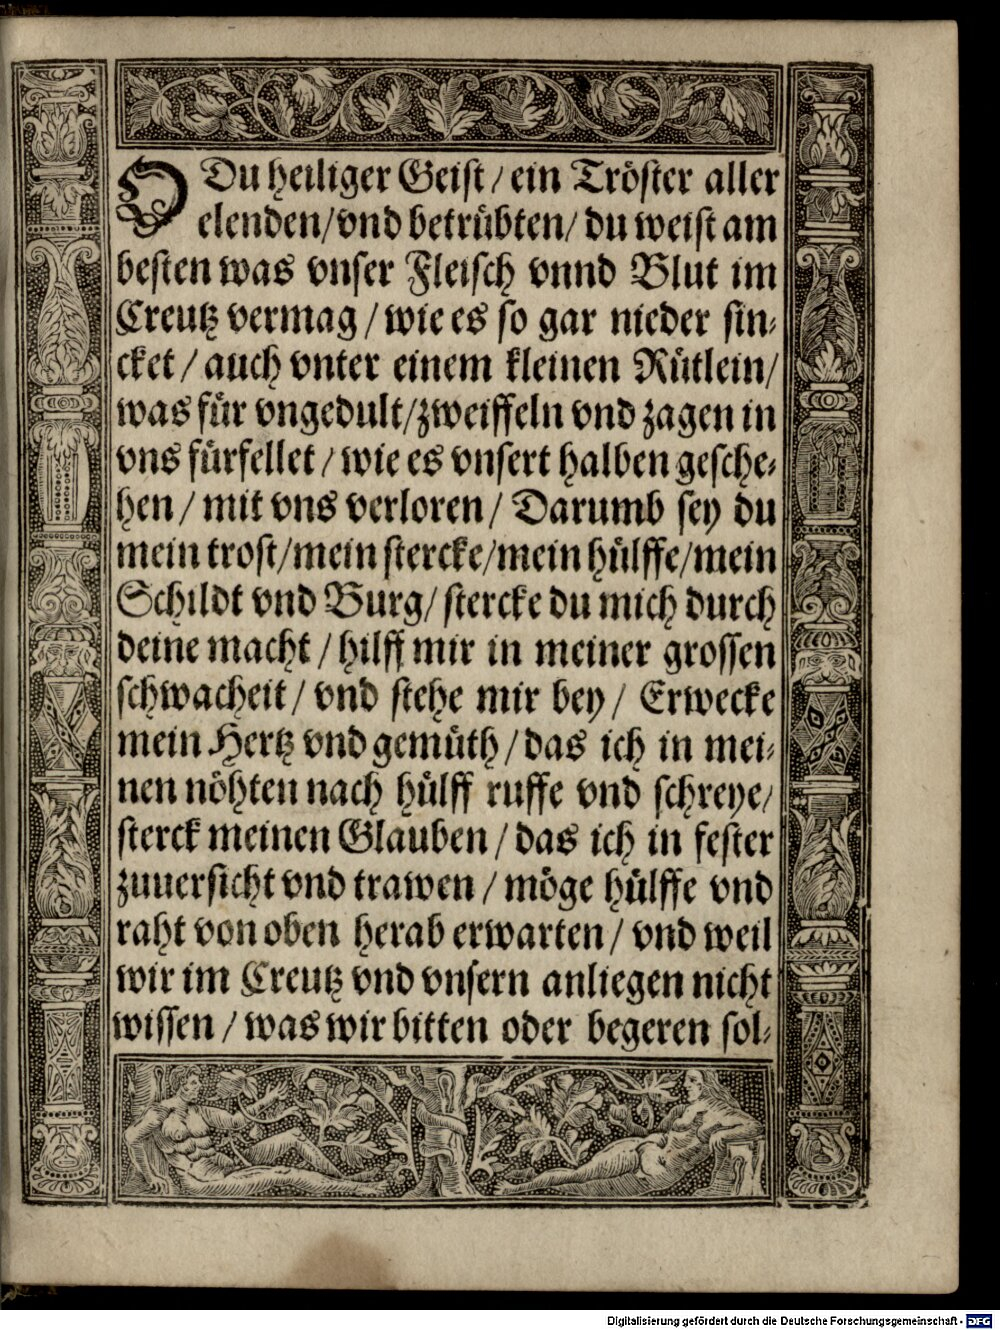 O Du heiliger Geist / ein Tröster aller
elenden / vnd betrübten / du weist am
besten was vnser Fleisch vnnd Blut im
Creutz vermag / wie es so gar nieder sin⸗
cket / auch vnter einem kleinen Rütlein /
was für vngedult / zweiffeln vnd zagen in
vns fürfellet / wie es vnsert halben gesche⸗
hen / mit vns verloren / Darumb sey du
mein trost / mein stercke / mein hülffe / mein
Schildt vnd Burg / stercke du mich durch
deine macht / hilff mir in meiner grossen
schwacheit / vnd stehe mir bey / Erwecke
mein Hertz vnd gemüth / das ich in mei⸗
nen nöhten nach hülff ruffe vnd schreye /
sterck meinen Glauben / das ich in fester
zuuersicht vnd trawen / möge hülffe vnd
raht von oben herab erwarten / vnd weil
wir im Creutz vnd vnsern anliegen nicht
wissen / was wir bitten oder begeren sol⸗
Digitalisierung gefördert durch die Deutsche Forschungsgemeinschaft - DFG